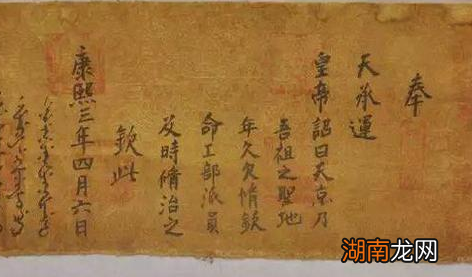 奉
天承運
皇帝詔曰天京乃
吾祖之聖地
年久欠脩欽
命工部派員
及時脩治之
欽此
康熙三年四月六日
湖南龙网